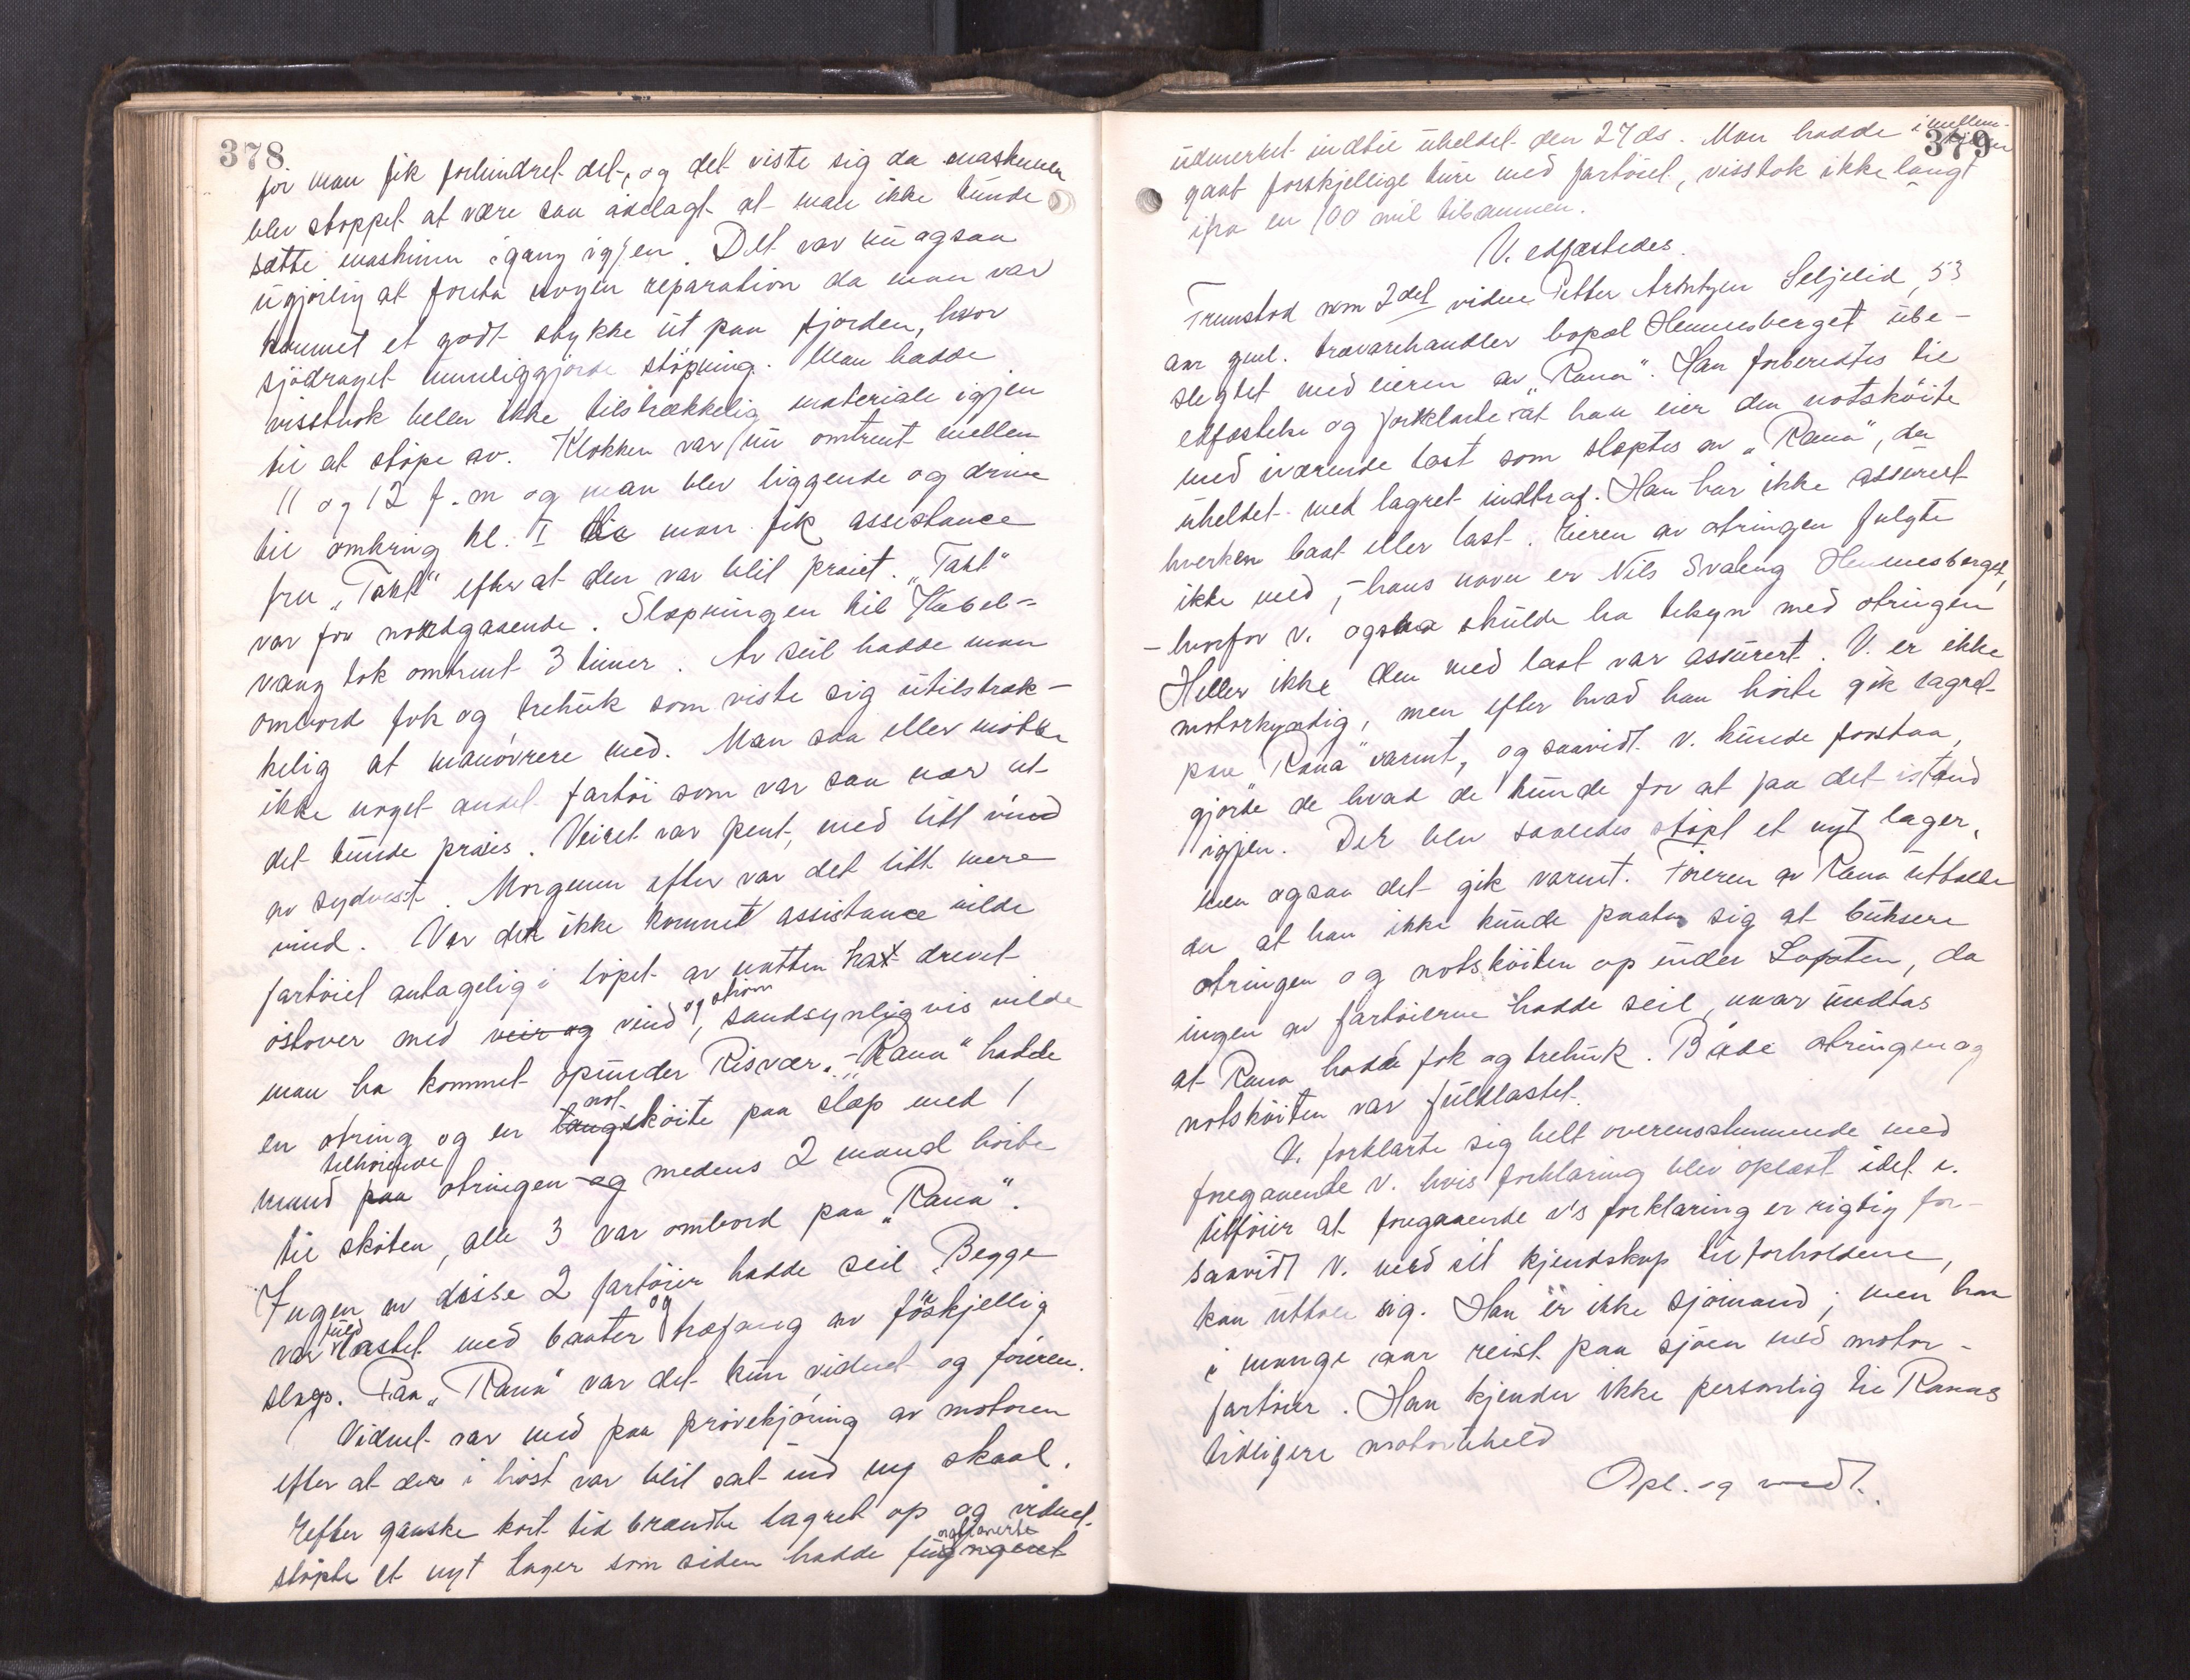 378
før man fik forhindret det, og det viste sig da maskinen
blev stoppet at være saa ødelagt at man ikke kunde
sætte maskinen igang igjen. Det var nu ogsaa
ugjørlig at foreta nogen reparation da man var
kommet et godt stykke ut paa fjorden, hvor
sjødraget umuliggjorde støpning. Man hadde
visstnok heller ikke tilstrækkelig materiale igjen
til at støpe av. Klokken var nu omtrent mellem
11 og 12 f.m og man blev liggende og drive
til omkring kl. 1 da man fik assistance
fra „Takt" efter at den var blit praiet. „Takt"
var for nordgaaende. Slæpningen til Kabel-
vaag tok omtrent 3 timer. Av seil hadde man
ombord fok og trehuk som viste sig utilstræk-
kelig at manøvrere med. Man saa eller møtte
ikke noget andet fartøi som var saa nær at
det kunde praies. Veiret var pent, med litt vind
av sydvest. Morgenen efter var det litt mere
vind. Var det ikke kommet assistance vilde
fartøiet antagelig i løpet av natten hat drevet
østover med veir og vind og strøm, sandsynligvis vilde
man ha kommet opunder Risvær. - „Rana" hadde
en otring og en notskøite paa slæp med 1
mand tilhørende otringen og medens 2 mand hørte
til skøiten, alle 3 var ombord paa „Rana".
Ingen av disse 2 fartøier hadde seil. Begge
var fuldlastet med baater og trefang av forskjellig
slags. Paa „Rana" var det kun vidnet og føreren.
Vidnet var med paa prøvekjøring av motoren
efter at der i høst var blit sat ind ny skaal.
Efter ganske kort tid brændte lagret op og vidnet
støpte et nyt lager som siden hadde fungeret
379
udmerket indtil uheldet den 27 ds. Man hadde i mellem-
gaat forskjellige ture med fartøiet, visstok ikke langt
ifra en 100 mil tilsammen.
V. edfæstedes.
Fremstod som 2det vidne Petter Arntzen Seljelid, 53
aar gml. trævarehandler bopæl Hemnesberget ube-
slegtet med eieren av „Rana". Han forberedtes til
edfæstelse og forklarte: at han eier den notskøite
med iværende last som slæptes av „Rana", da
uheldet med lagret indtraf. Han har ikke assurert
hverken baat eller last. Eieren av otringen fulgte
ikke med, - hans navn er Nils Svaleng Hemnesberget,
- hvorfor v. ogsaa skulde ha tilsyn med otringen
Heller ikke den med last var assurert. V. er ikke
motorkyndig, men efter hvad han hørte gik lagret
paa „Rana" varmt, og saavidt v. kunde forstaa,
gjorde de hvad de kunde for at faa det istand
igjen. Det blev saaledes støpt et nyt lager,
men ogsaa det gik varmt. Føreren av Rana uttalte
da at han ikke kunde paata sig at buksere
otringen og notskøiten op under Lofoten, da
ingen av fartøierne hadde seil, naar undtas
at Rana hadde fok og trehuk. Både otringen og
notskøiten var fuldlastet.
V. forklarte sig helt overensstemmende med
foregaaende v. hvis forklaring blev oplæst idet v.
tilføier at foregaaende v's forklaring er rigtig for-
saavidt v. med sit kjendskap til forholdene,
kan uttale sig. Han er ikke sjømand; men har
i mange aar reist paa sjøen med motor-
fartøier. Han kjender ikke personlig til Ranas
tidligere motoruheld
Opl. og vedt.